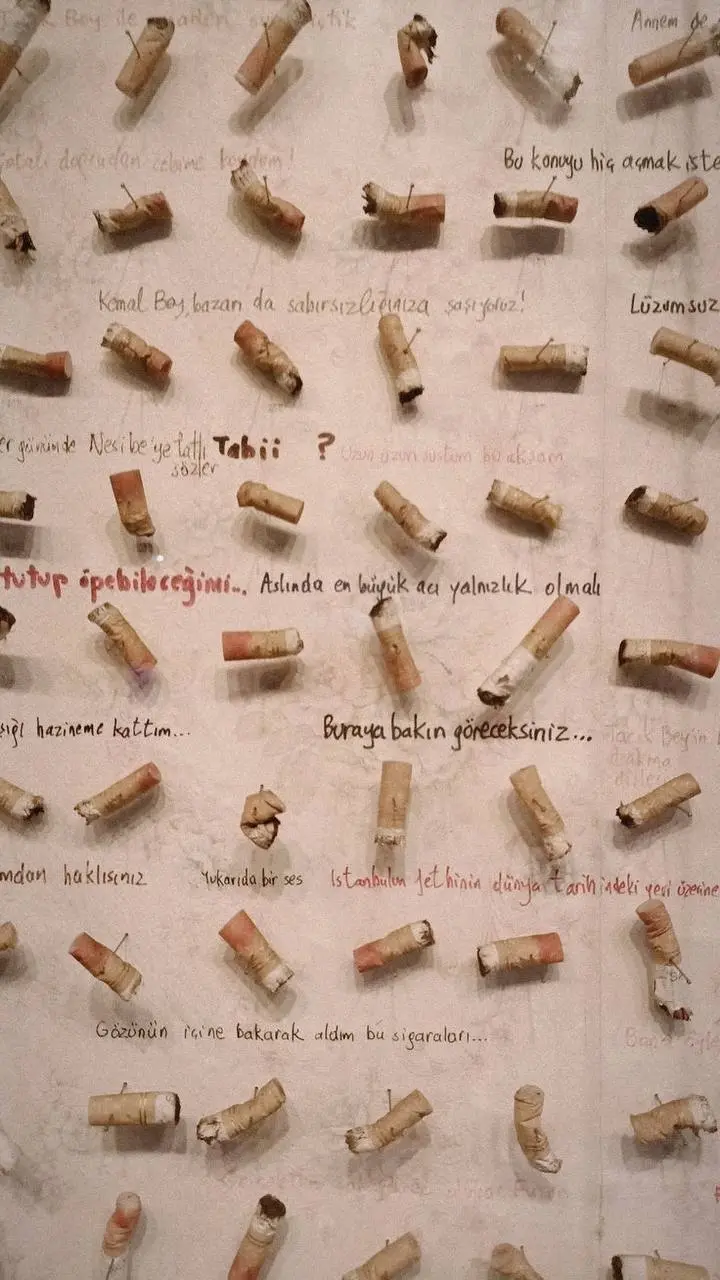 Bey de
Annem de
doğrudan cebime koydum!
Bu konuyu hiç açmak iste
Kemal Bey, bazan da sabırsızlığınıza şaşıyoruz!
Lüzumsuz
er gününde Nesibe'ye tatlı sözler
Tabii ?
Uzun uzun sustum bu akşam
tutup öpebileceğimi..
Aslında en büyük acı yalnızlık olmalı
hazineme kattım...
Buraya bakın göreceksiniz...
Tarık Bey'in
takma
dişleri
mdan haklısınız
Yukarıda bir ses
İstanbulun fethinin dünya tarihindeki yeri üzerine
Gözünün içine bakarak aldım bu sigaraları...
Bana öyle